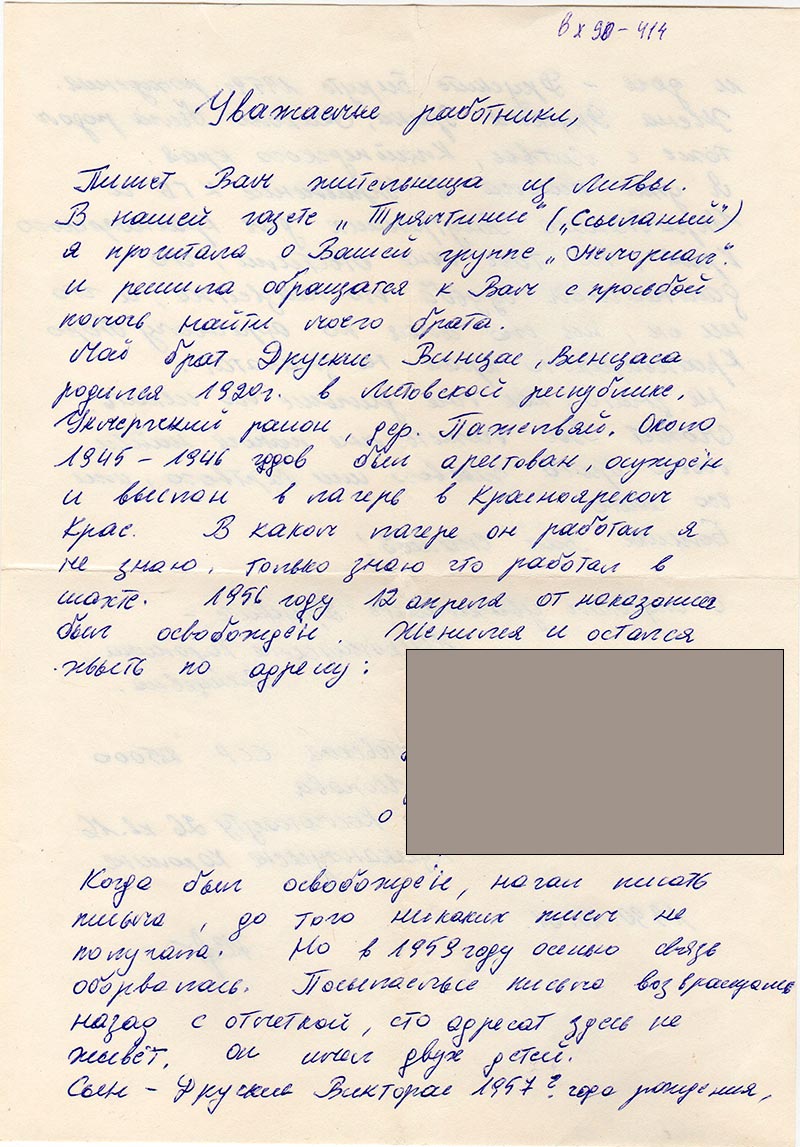 Вх 90-414
Уважаемые работники,
Пишет Вам жительница из Литвы.
В нашей газете „Трямтинис" („Ссыланий")
я прочитала о Вашей группе „Мемориал".
и решила обращатся к Вам с просьбой
помочь найти моего брата.
Май брат Друскис Винцас, Винцаса
родился 1920г. в Литовской республике,
Укмергский район, дер. Пажельвяй. Около
1945-1946 годов был арестован, осуждён
и выслан в лагерь в Красноярском
Крае. В каком лагере он работал я
не знаю, только знаю что работал в
шахте. 1956 году 12 апреля от наказания
был освобождён. Женился и остался
жвыть по адресу:
о
Когда был освобождён, начал писать
письма, до того никаких писем не
получала. Но в 1959 году осенью связь
оборвалась. Посылаемые письма возвращались
назад с отметкой, сто адресат здесь не
живёт. Он имел двух детей.
Сын - Друскис Викторас 1957? года рождения,